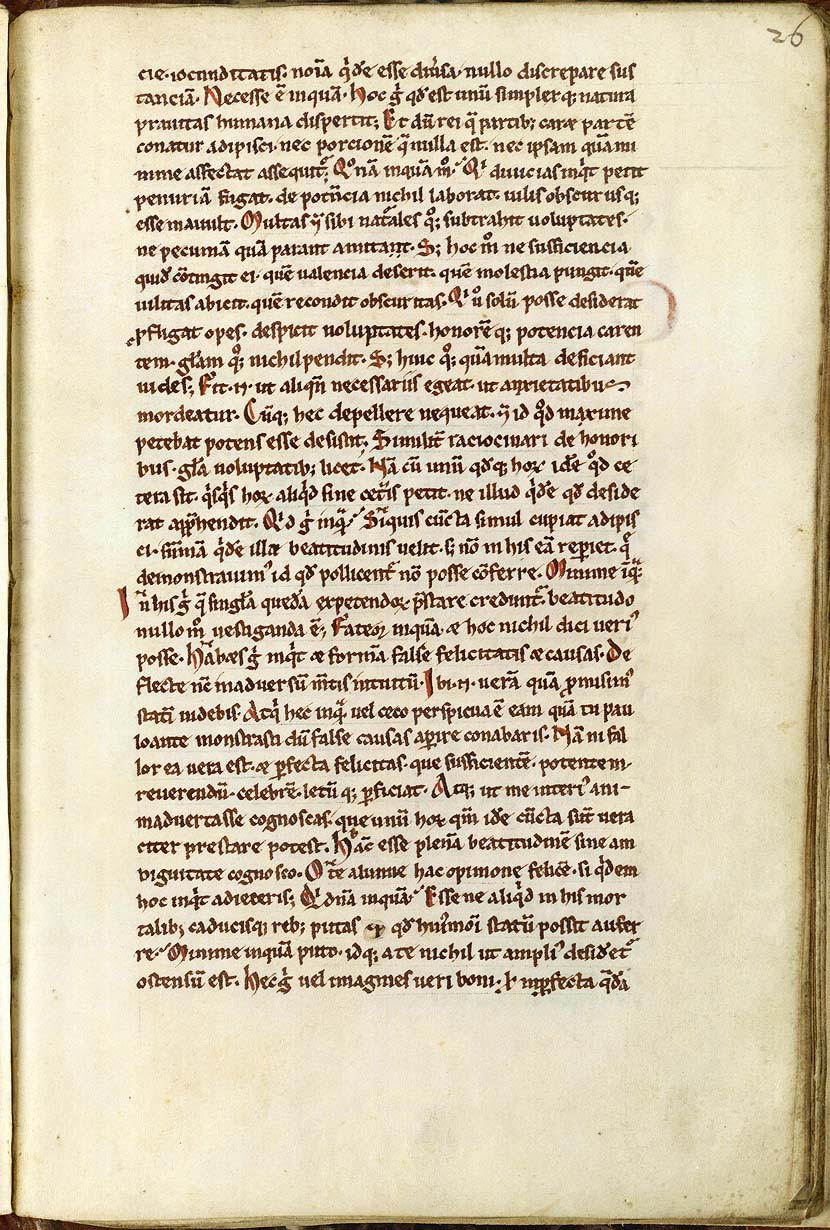 26
cie· iocunditatis· noīa q̇dē esse diũsa· nullo discrepare sus
tanciā· Necesse ē inquā· Hoc ġ qđ est unū simplex q; natura
prauitas humana dispertit; Et dū rei q̄ partib; caret partē
conatur adipisci· nec porcionē q̄ nulla est· nec ipsam quā mi
nime affectat assequit᷑· Qͦ nā inquā mͦ· Qͥ diuicias inq̇t petit
penuriā fugat· de potēcia nichil laborat· uilis obscurusq;
esse mauult· Multas ͥ sibi nat̄ales qͦ; subtrahit uoluptates·
ne pecuniā quā parauit amittat· S; hoc mͦ ne sufficiencia
quid cōtingit ei· quē ualencia deserit· quē molestia pungit· quē
uilitas abicit· quē recondit obscuritas· Qͥ uͦ solū posse desiderat
ꝓfligat opes· despicit uoluptates· honorē q; potencia caren
tem· gl̄am qͦ; nichil pendit· S; hinc qͦ; quā multa deficiant
uides; Fit·n· ut aliqn̄ necessariis egeat· ut anxietatibus
mordeatur· Cūq; hec depellere nequeat· ͥ id qͦd maxime
petebat potens esse desistit; Similit᷑ raciocinari de honori
bus· gl̄a uoluptatib; licet· Nā cū unū qđq; hoꝝ idē qͦd ce
tera sit· q̇sq̇s hoꝝ aliq̇d sine cet᷑is petit· ne illud q̇dē qđ deside
rat app̄hendit· Qͥd ġ inq̄· Siquis cūcta simul cupiat adipis
ci· sūmā q̇dē ille beatitudinis uelit· s; nō in his eā repiet· q̄
demonstrauimꝰ id qđ pollicent᷑ nō posse cōferre· Minime īq̄·
In his ġ q̄ singl̄a quedā expetendoꝝ p̄stare credunt᷑· beatitudo
nullo mͦ uestiganda ē; Fateoꝛ inquā· & hoc nichil dici ueriꝰ
posse· Habes ġ inq̇t & formā false felicitatis & causas· De
flecte nc̄ in aduersū mētis intuitū· Ibi·n· uerā quā ꝓmisimꝰ
statī uidebis· Atq̇ hec inq̄· uel ceco perspicua ē eam q̄a tu pau
loante monstrasti dū false causas apire conabaris· Nā ni fal
lor ea uera est· & ꝑfecta felicitas· que sufficientē· potentem·
reuerendū· celebrē· letū q; ꝑficiat· Atq; ut me interiꝰ ani-
maduertasse cognoscas· que unū hoꝝ qm̄ idē cūcta sūt uera
citer prestare potest· Hāc esse plenā beatitudinē sine am
biguitate cognosco· O te alumne hac opinione felicē· si q̇dem
hoc inq̇t adieceris; Qͥdnā inquā· Esse ne aliq̇d in his mor
talib; caducisq; reb; putas qđ huiꝰmoi statū possit affer
re· Minime inquā puto· idq; a te nichil ut ampliꝰ desidet᷑
ostensū est· Hec ġ uel imagines ueri boni· ł inꝑfecta q̄dā